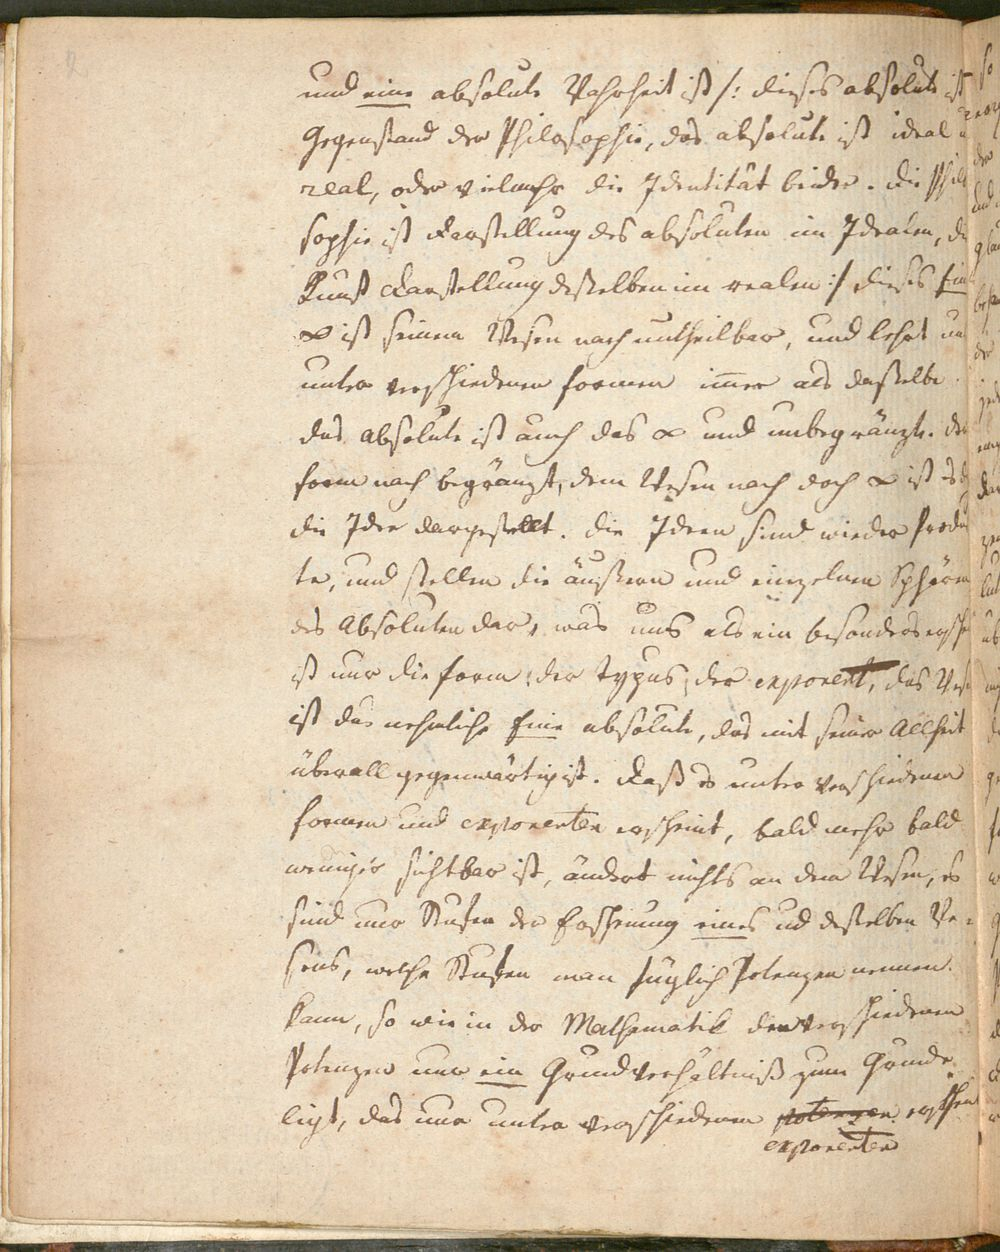 2
und eine absolute Wahrheit ist /: dieses absolute ist
Gegenstand der Philosophie, das absolute ist ideal u
real, oder vielmehr die Identität beider. die Philo
sophie ist darstellung des absoluten im Idealen, di
Kunst darstellung desselben im realen :/ dieses Eine
∞ ist seinem Wesen nach untheilbar, und kehrt nur
unter verschiedenen formen immer als dasselbe.
das Absolute ist auch das ∞ und unbegränzte. der
form nach begränzt, dem Wesen nach doch ∞ ist es
die Idee dargestellt. die Ideen sind wieder Produk
te, und stellen die äußern und einzelnen Sphären
des Absoluten dar, was uns als ein besonders ersche
ist nur die form, der typus, der exponent, das Wese
ist das nehmliche Eine absolute, das mit seiner Allheit
überall gegenwärtig ist. daß es unter verschiedenen
formen und exponenten erscheint, bald mehr bald
weniger sichtbar ist, ändert nichts an dem Wesen, es
sind nur Stufen der Erscheinung eines und desselben We-
sens, welche Stufen man füglich Potenzen nennen
kann, so wie in der Mathematik den verschiedenen
Potenzen nur ein Grundverhältniß zum Grunde
ligt, das nur unter verschiedenen potenzen erschein
exponenten